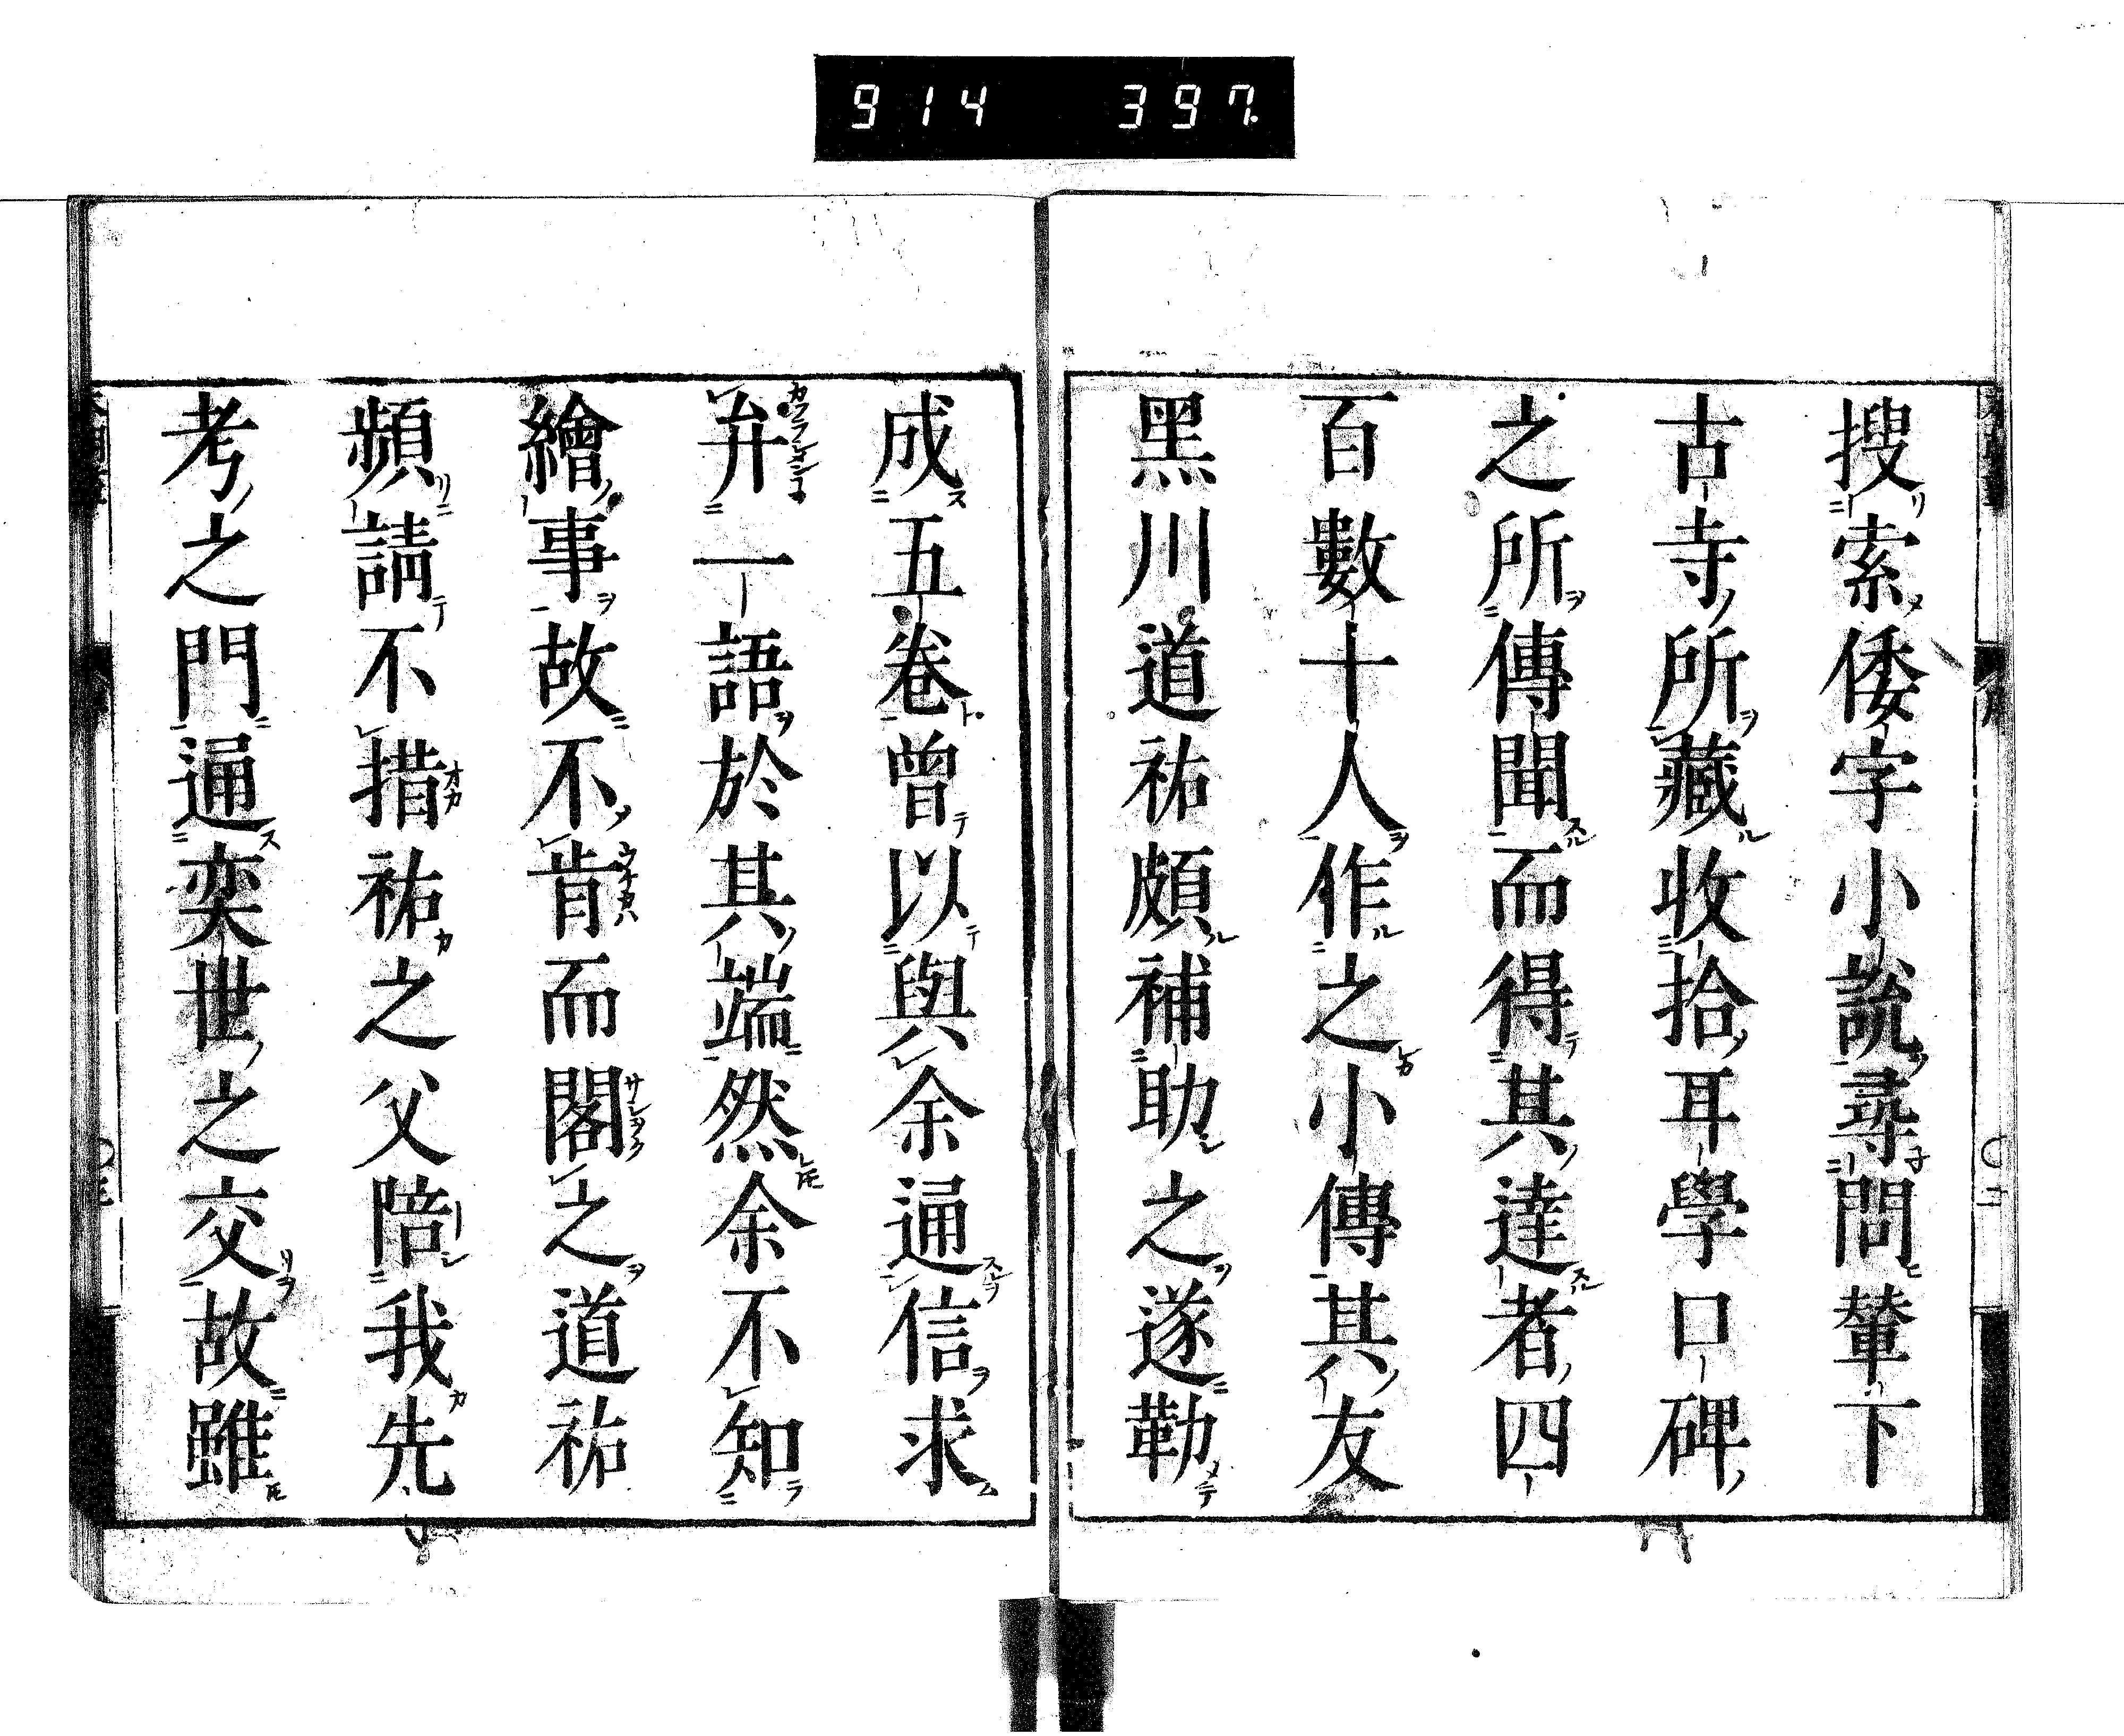 914 397
搜索倭字小說尋問輦下
古寺所藏收拾耳學口碑
之所傳聞而得其達者四
百數十人作之小傳其友
黑川道祐頗補助之遂勒
成五卷曾以與余通信求
弁一語於其端然余不知
繪事故不肯而閣之道祐
頻請不措祐之父陪我先
考之門通奕世之交故雖